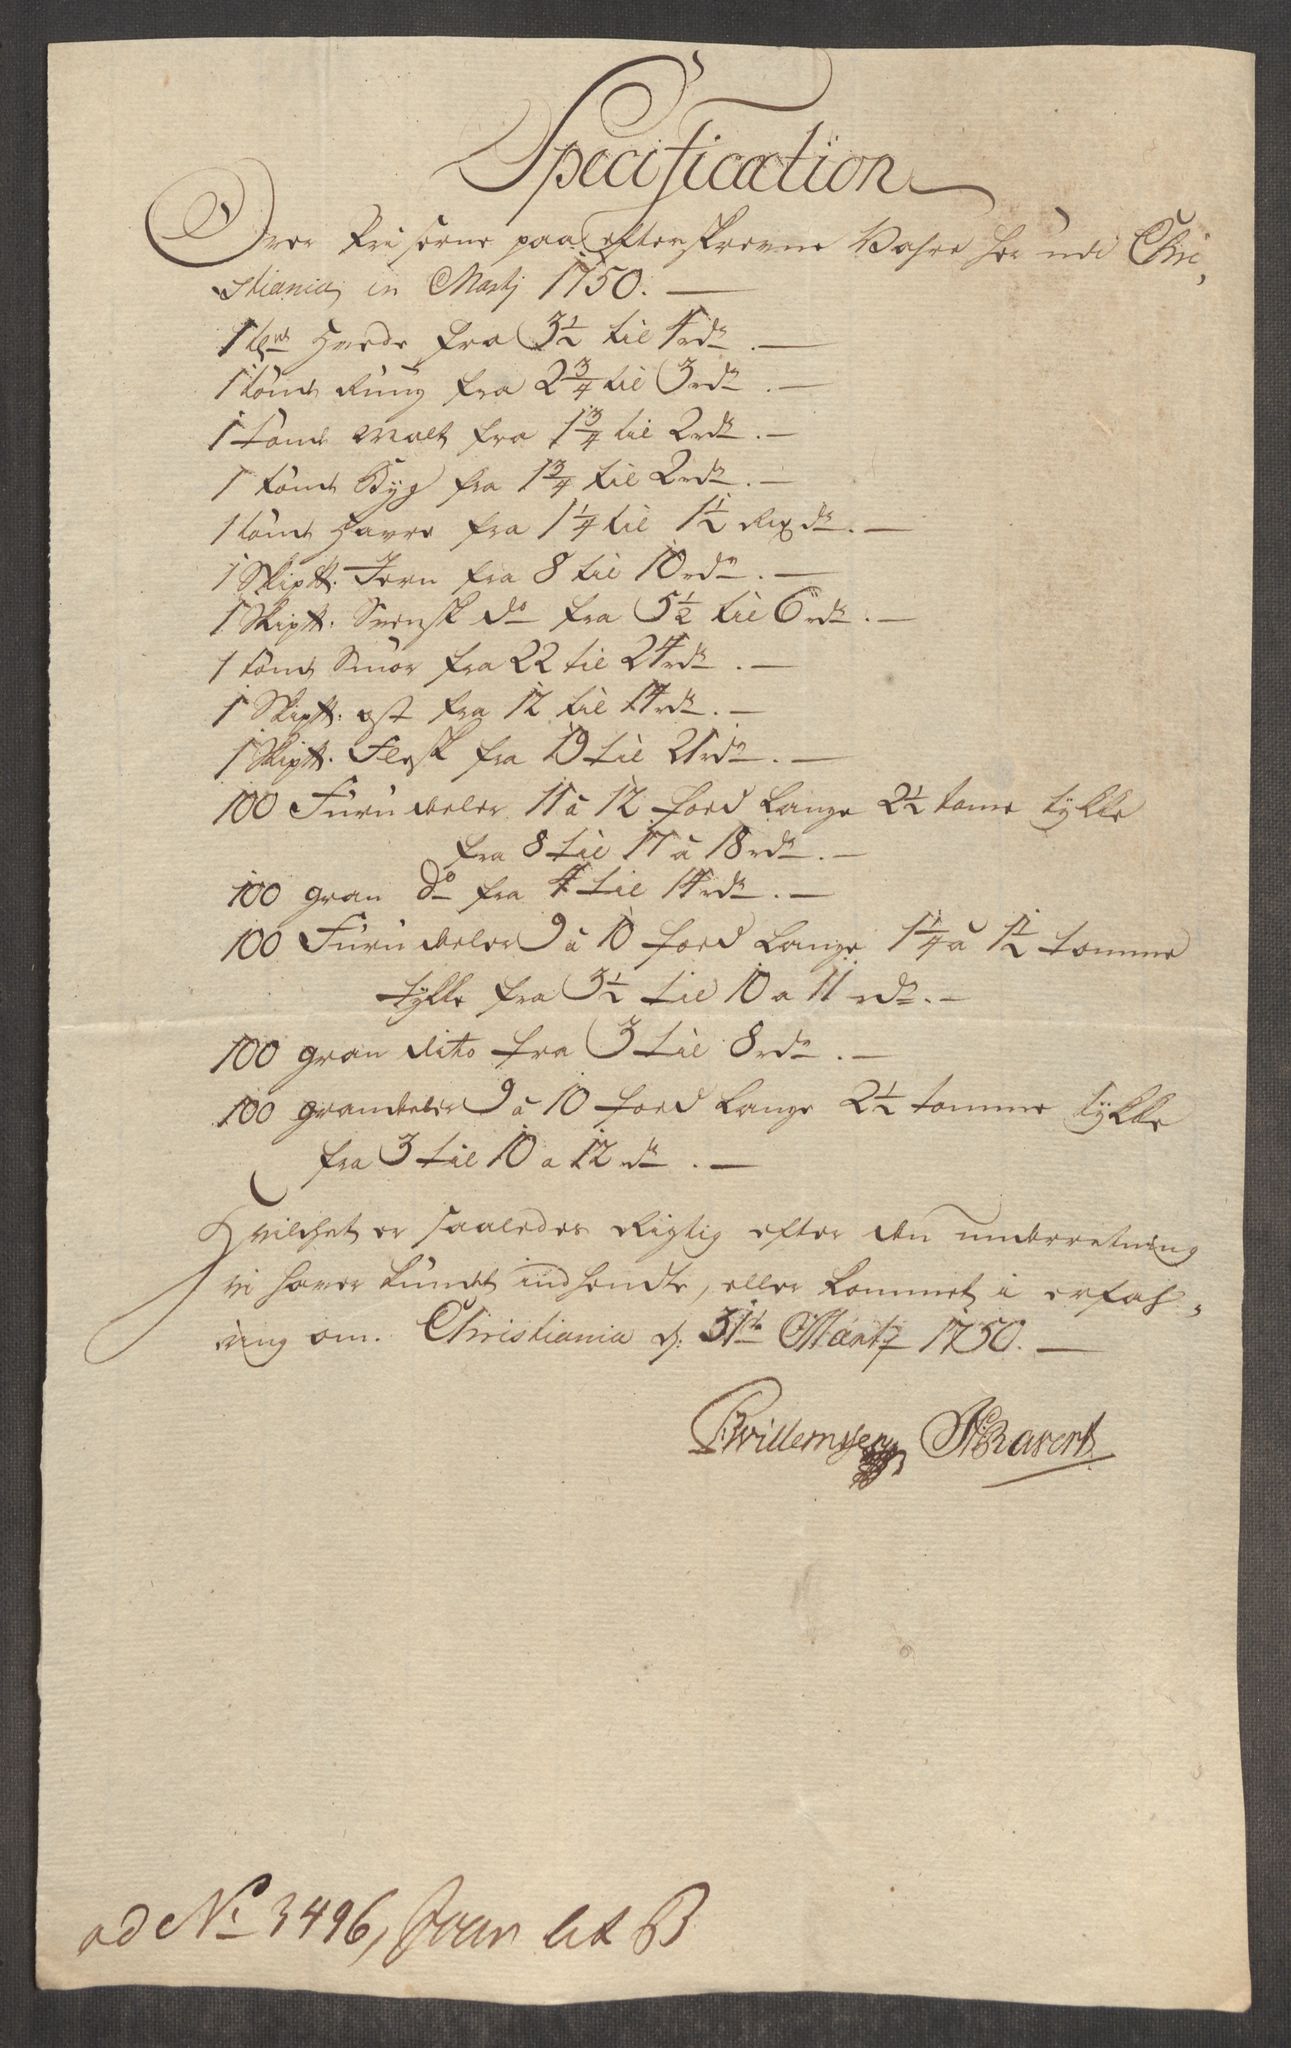 Specification
Over Priserne paa efterskrevne Vahre her udi Chri-
stiania, in Martj 1750. —
1 tønd Hvede fra 3½ til 4 rdr. —
1 tønd Rùng fra 2¾ til 3 rdr. —
1 tønd Malt fra 1¾ til 2 rdr. —
1 tønd Byg fra 1¾ til 2 rdr. —
1 tønd Havre fra 1¼ til 1½ Rixdr. —
1 Skip℔. Jern fra 8 til 10 rdr. —
1 Skip℔. Svensk do fra 5½ til 6 rdr. —
1 tønd Smør fra 22 til 24 rdr. —
1 Skip℔. ost fra 12 til 14 rdr. —
1 Skip℔. Flesk fra 19 til 21 rdr. —
100 Fùrù deler 11 à 12 foed lange 2½ tome tykke
fra 8 til 17 à 18 rdr. —
100 gran do fra 4 til 14 rdr. —
100 Fùrù deler 9 à 10 foed lange 1¼ à 1½ tomme
tykke fra 3½ til 10 a 11 rdr. —
100 gran dito fra 3 til 8 rdr. —
100 grandeler 9 à 10 foed lange 2½ tomme tykke
fra 3 til 10 a 12 rdr. —
Hvilchet er saaledes Rigtig efter den underretning
vi haver kundet indhendte, eller kommet i erfah-
ring om. Christiania d: 31te Martz 1750. —
Willemssen Ravert
ad No 3496, Joan Lit B